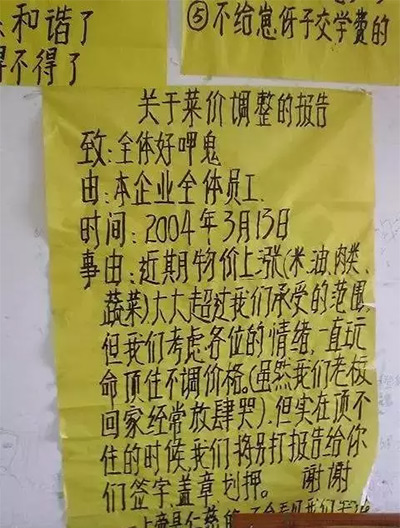 和谐了
得不得了
⑤不给崽伢子交学费的
关于菜价调整的报告
致:全体好呷鬼
由:本企业全体员工.
时间:2004年3月13日
事由:近期物价上涨(米、油、肉类、
蔬菜)大大超过我们承受的范围,
但我们考虑各位的情绪,一直玩
命顶住不调价格。(虽然我们老板
回家经常放肆哭).但实在顶不
住的时候,我们将另打报告给你
们签字、盖章、划押。 谢谢